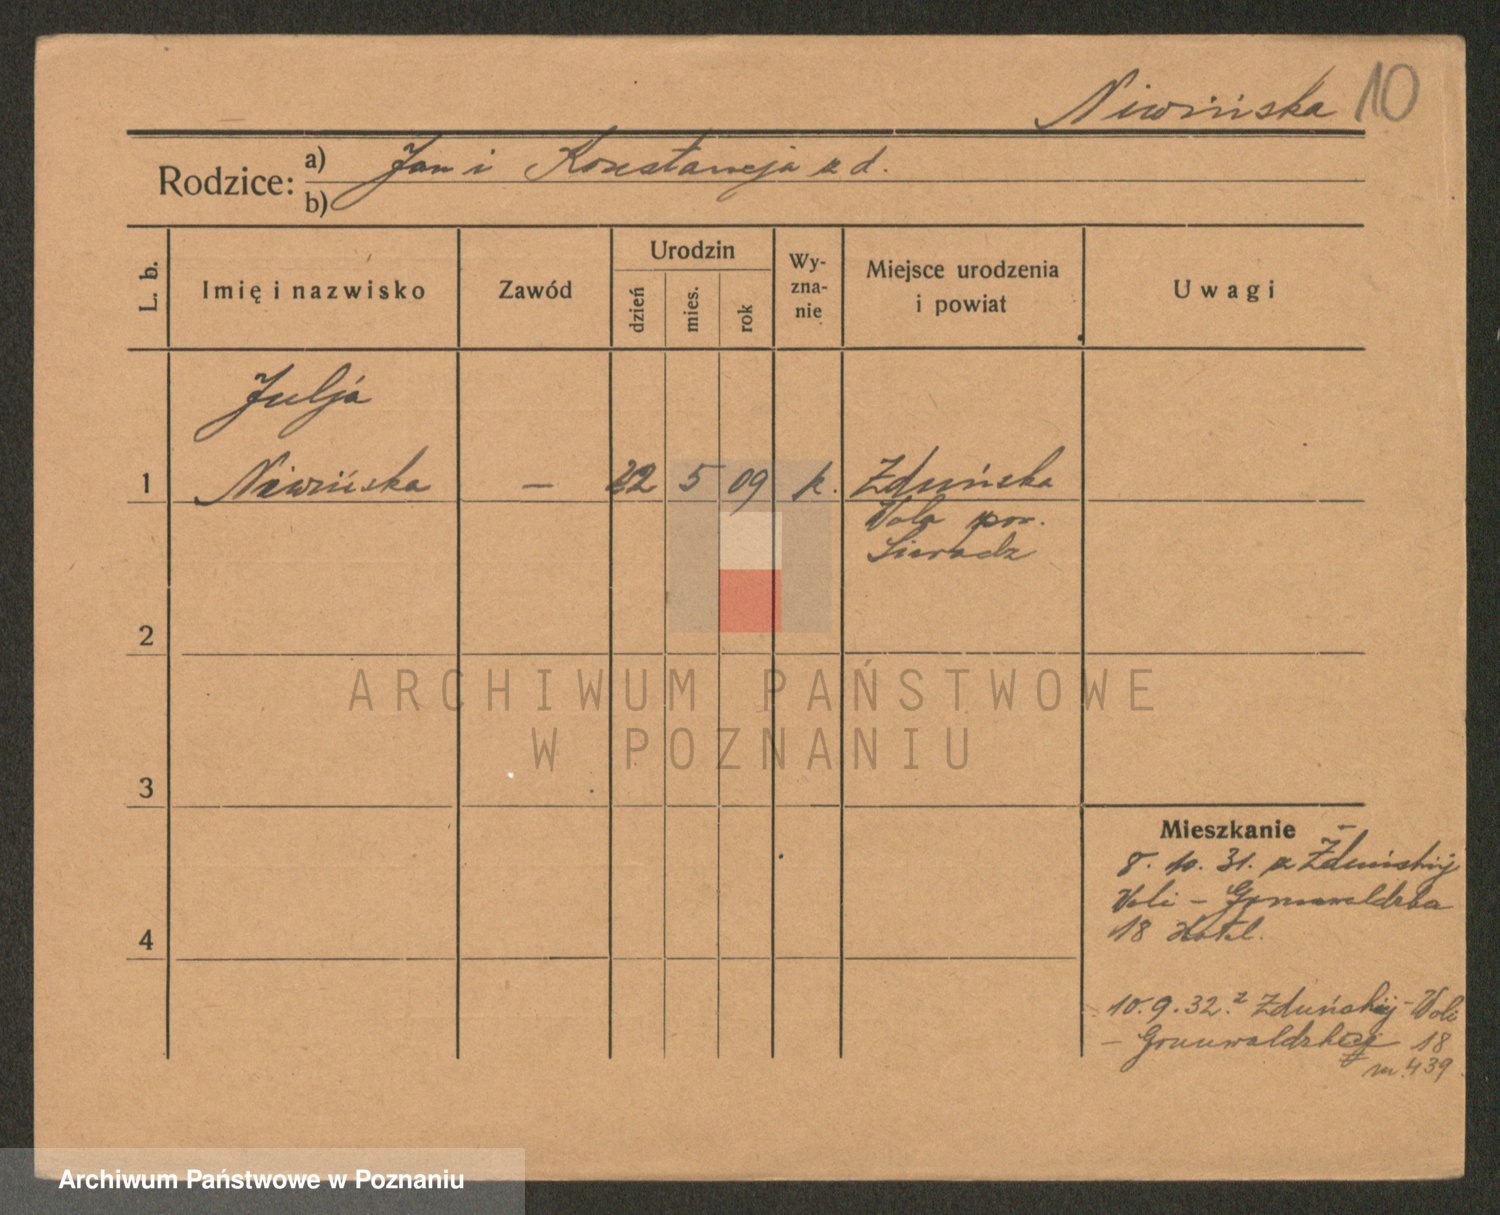 Niwińska 10
Rodzice: a) Jan i Konstancja z d.
b)
L. b. Imię i nazwisko Zawód Urodzin dzień mies. rok Wy-zna-nie Miejsce urodzenia i powiat Uwagi
Julja
1 Niwińska — 22 5 09 k. Zduńska
Wola pow.
Sieradz
2
ARCHIWUM PAŃSTWOWE
W POZNANIU
3
Mieszkanie
8. 10. 31. z Zduńskiej
Woli – Grunwaldzka
18 Hotel.
4
10. 9. 32. z Zduńskiej-Woli
– Grunwaldzka 18
m. 439
Archiwum Państwowe w Poznaniu